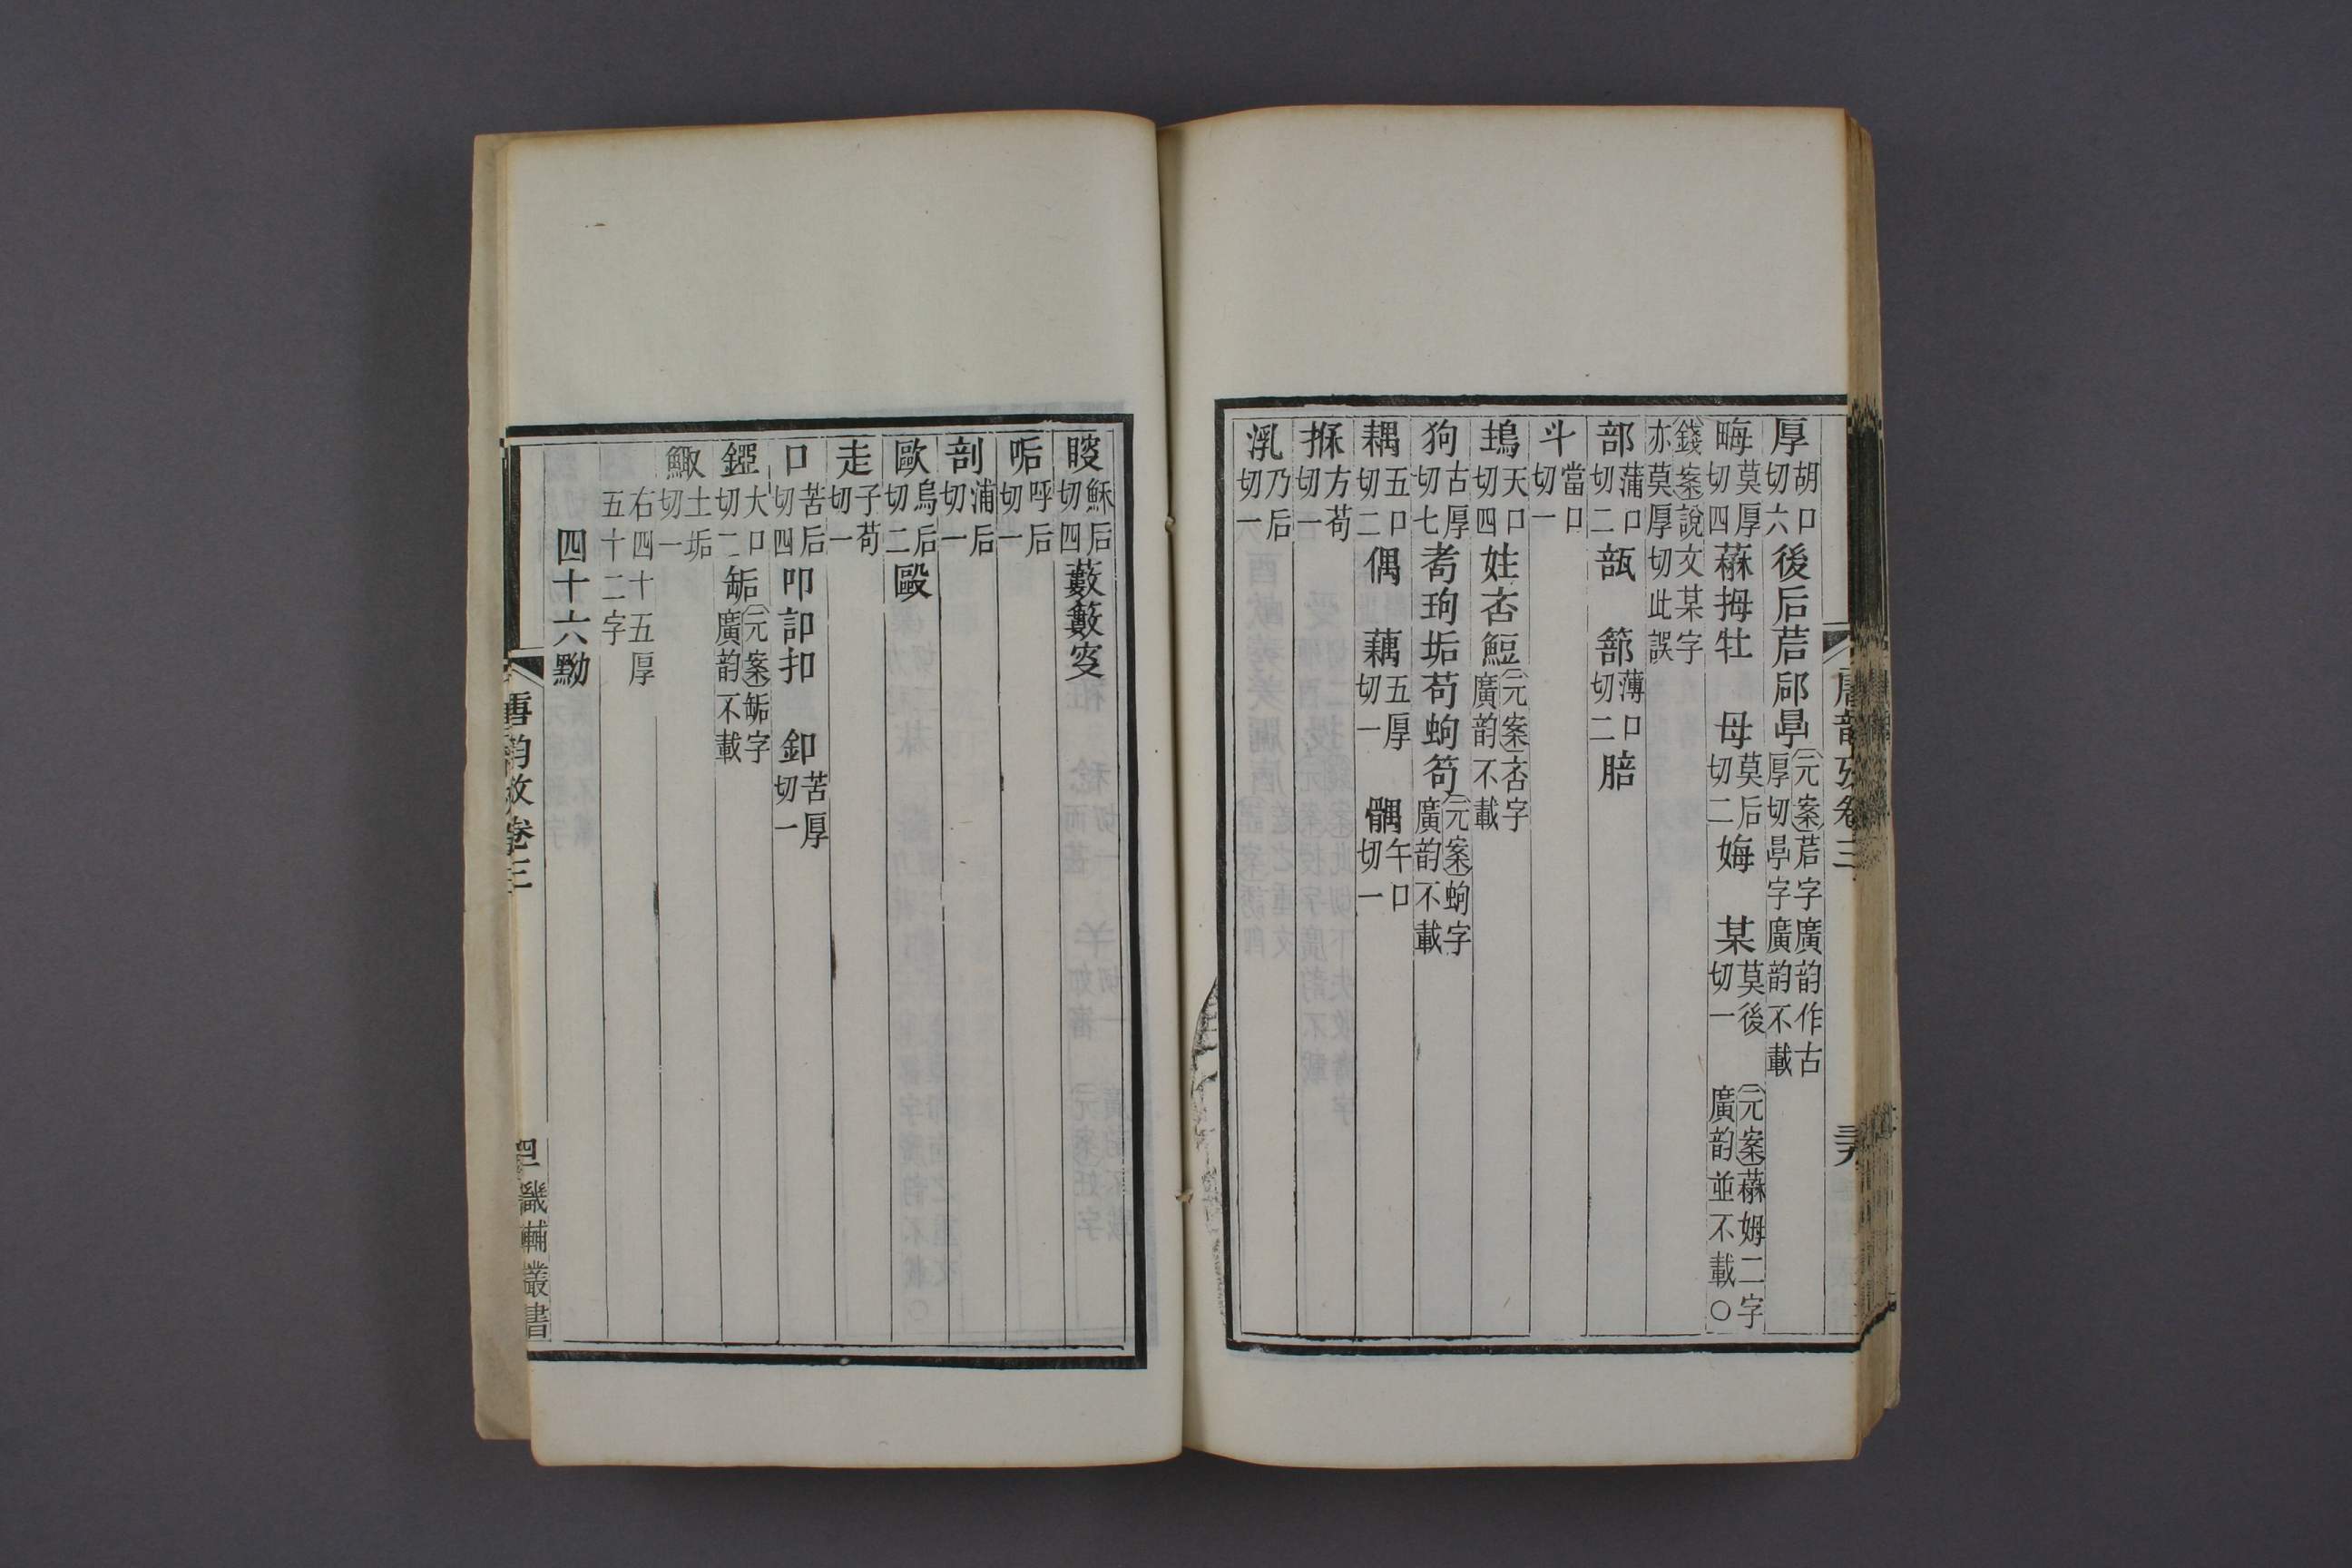 厚胡口切六後后茩郈㫗元案茩字廣韵作古厚切㫗字廣韵不載
畮莫厚切四䓮拇牡 母莫后切二娒 某莫後切一 元案䓮姆二字廣韵並不載〇
錢案說文某字亦莫厚切此誤
部蒲口切二瓿 篰薄口切二䏽
斗當口切一
䵷天口切四妵否䱏元案否字廣韵不載
狗古厚切七耇玽垢苟蚼笱元案蚼字廣韵不載
耦五口切二偶 藕五厚切一 髃午口切一
掊方苟切一
㳶乃后切一
唐韵攷卷三
瞍穌后切四藪籔叜
㖃呼后切一
剖浦后切一
歐烏后切二毆
走子苟切一
口苦后切四叩訆扣 釦苦厚切一
鋀大口切二缿元案缿字廣韵不載
鯫土垢切一
右四十五厚五十二字
四十六黝
唐韵攷卷三
畿輔叢書